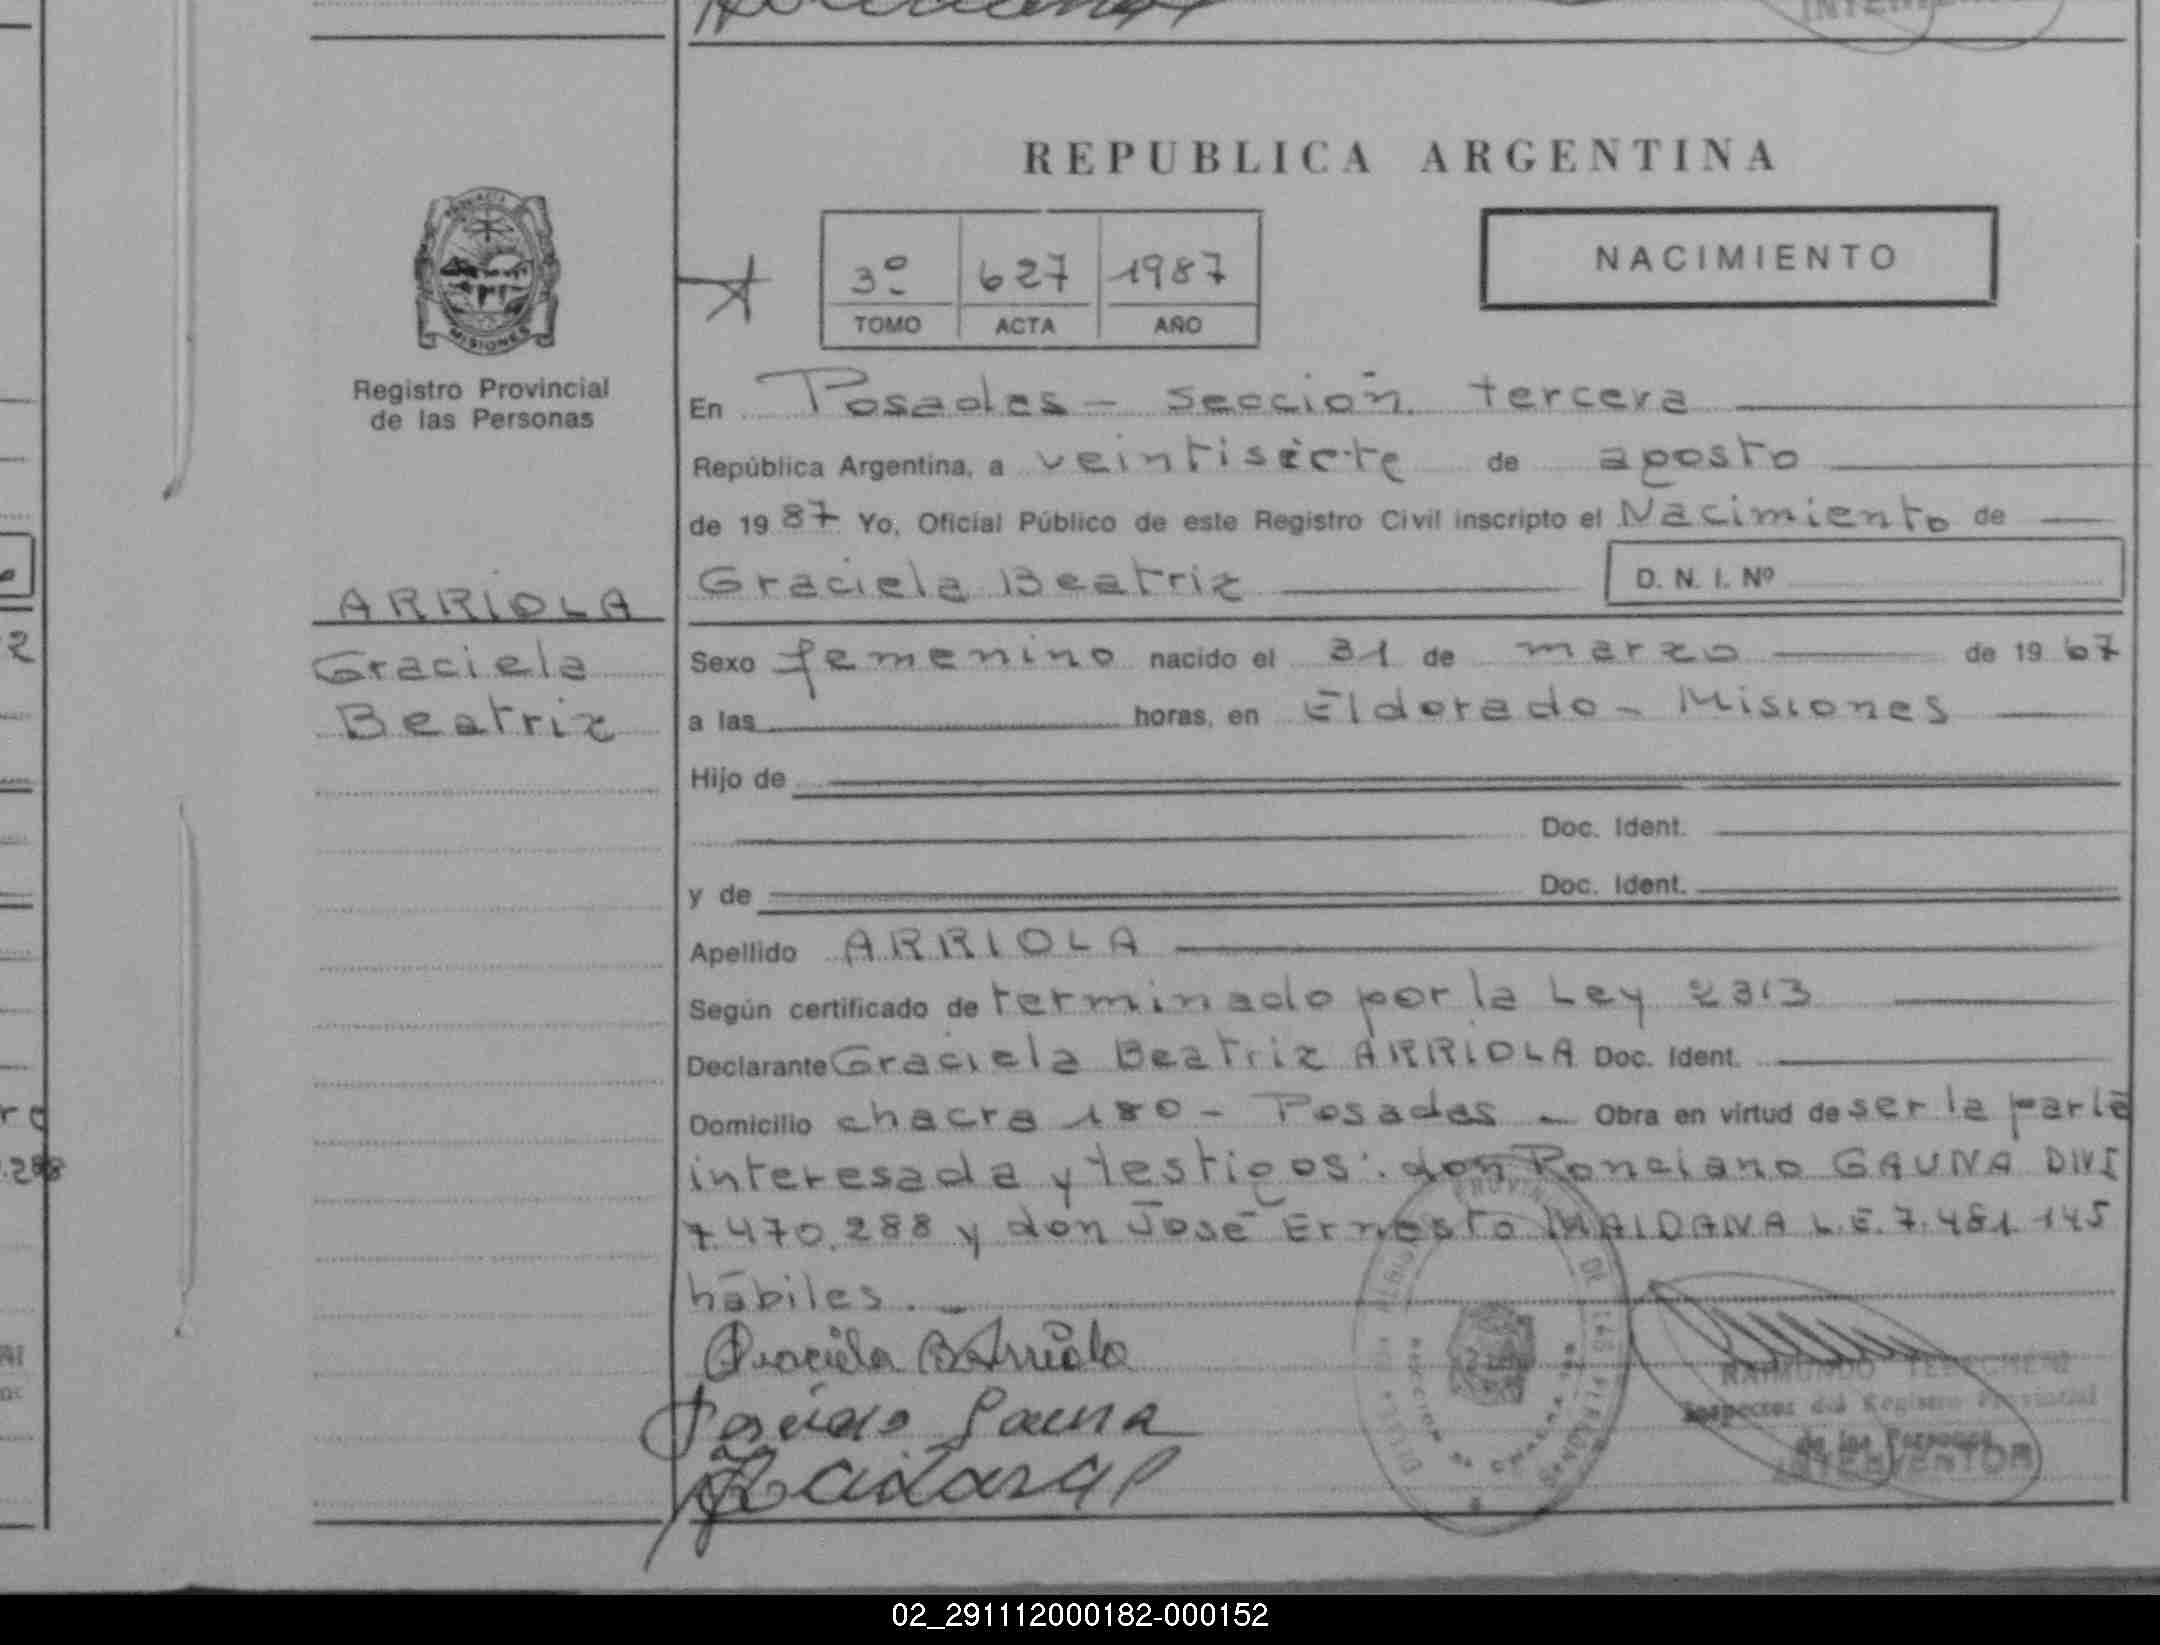 REPUBLICA ARGENTINA
3º 627 1987
TOMO ACTA AÑO
NACIMIENTO
MISIONES
Registro Provincial
de las Personas
ARRIOLA
Graciela
Beatriz
En Posadas - sección tercera
República Argentina, a veintisiete de agosto
de 1987 Yo, Oficial Público de este Registro Civil inscripto el Nacimiento de
Graciela Beatriz D. N. I. Nº
Sexo femenino nacido el 31 de marzo de 1967
a las horas, en Eldorado - Misiones
Hijo de
Doc. Ident.
y de Doc. Ident.
Apellido ARRIOLA
Según certificado de terminado por la Ley 2313
Declarante Graciela Beatriz ARRIOLA Doc. Ident.
Domicilio chacra 180 - Posadas - Obra en virtud de ser la parte
interesada y testigos: don Ponciano GAUNA DNI
7.470.288 y don José Ernesto MAIDANA L.E. 7.481.145
hábiles.-
Graciela B Arriola
Gauna
RAIMUNDO
Inspector del Registro Provincial
de las Personas
INTERVENTOR
02_291112000182-000152